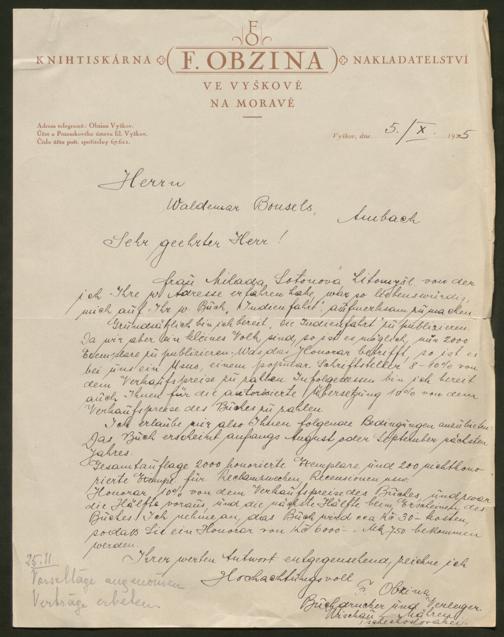 F O
KNIHTISKÁRNA F. OBZINA NAKLADATELSTVÍ
VE VYŠKOVĚ
NA MORAVĚ
Adresa telegramů: Obzina Vyškov.
Vyškov, dne 5./X. 1925
Herrn
Waldemar Bonsels,
Ambach
Sehr geehrter Herr!
Frau Milada Litomyšl von der
ich Ihre w. Adresse erfahren habe, war so liebenswürdig,
mich auf Ihr w. Buch "Indienfahrt" aufmerksam zu machen.
Grundsätzlich bin ich bereit, die Indienfahrt zu publizieren.
Da wir aber ein kleines Volk sind, so ist es möglich, nur 2000
Exemplare zu publizieren. Was das Honorar betrifft, so ist es
bei uns ein Usus, einem Schriftsteller 8-10% von
dem Verkaufspreise zu zahlen. Infolgedessen bin ich bereit
auch Ihnen für die autorisierte Übersetzung 10% von dem
Verkaufspreise des Buches zu zahlen.
Ich erlaube mir also Ihnen folgende Bedingungen anzubieten:
Das Buch erscheint anfangs August oder September nächsten
Jahres.
Gesamtauflage 2000 honorierte Exemplare, und 200 nichthono-
rierte für Reklamzwecken, Recensionen usw.
Honorar 10% von dem Verkaufspreise des Buches, und zwar
die Hälfte voraus, und die nächste Hälfte beim Erscheinen des
Buches! Ich nehme an, das Buch wird cca Kč 30- kosten,
so dass Sie ein Honorar von Kč 6000- Mk 750 bekommen
werden.
Ihrer werten Antwort entgegensehend, zeichne ich
Hochachtungsvoll
F. Obzina
Buchdrucker und Verleger
Mähren
25.11.
Vorschläge angenommen
Verträge erbeten